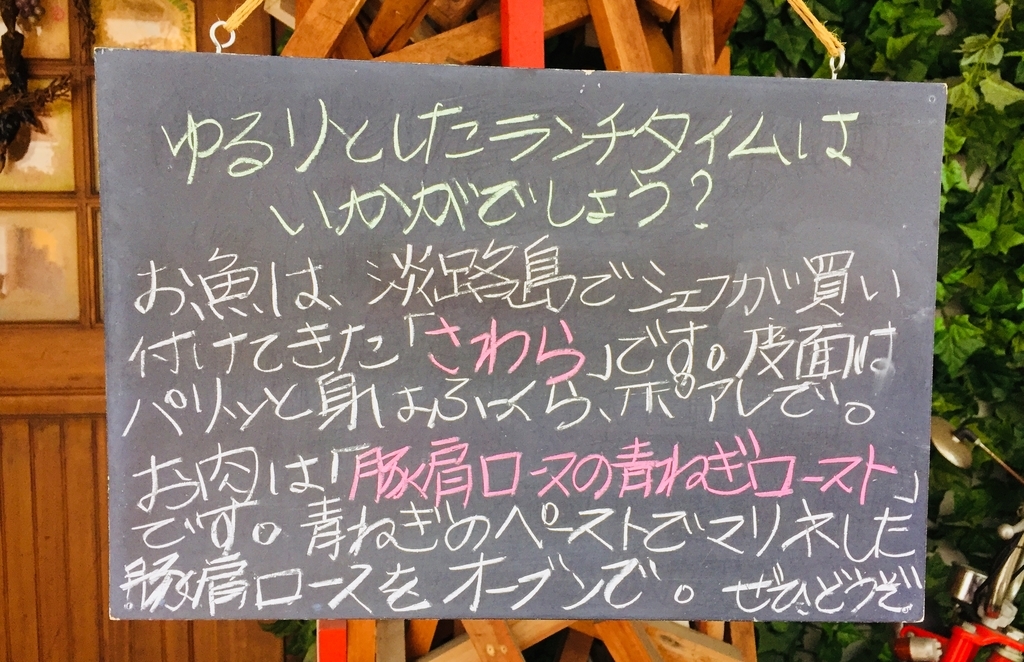 ゆるりとしたランチタイムは
いかがでしょう?
お魚は、淡路島でシェフが買い
付けてきた「さわら」です。皮面は
パリッと身はふっくら、ポアレで。
お肉は「豚肩ロースの青ねぎロースト」
です。青ねぎのペーストでマリネした
豚肩ロースをオーブンで。ぜひどうぞ